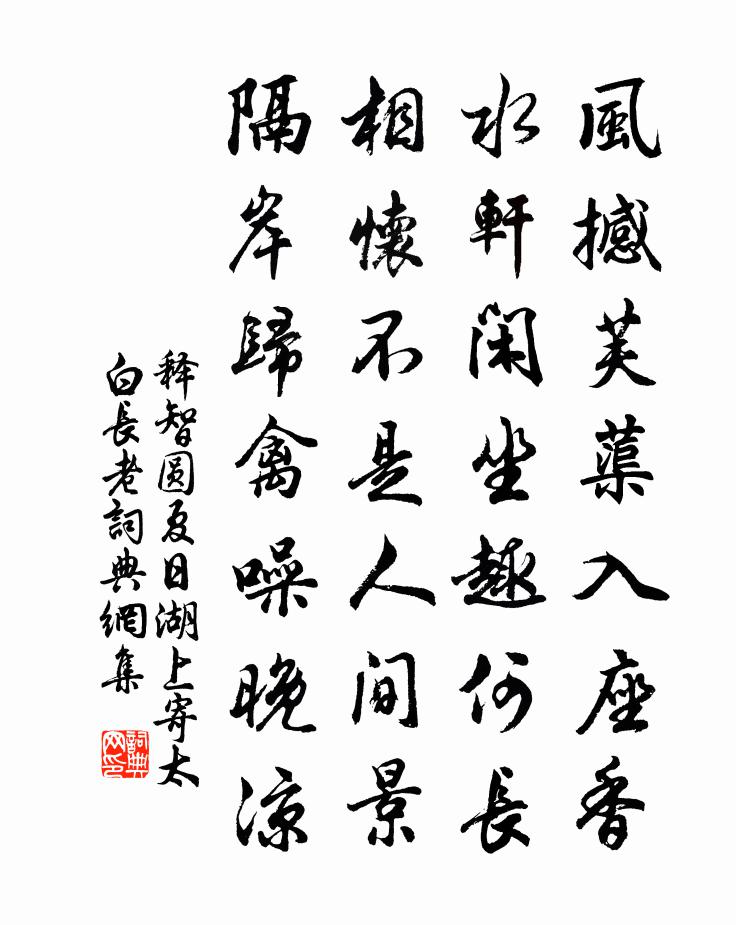 風撼芙蕖入座香
水軒閑坐趣何長
相懷不是人間景
隔岸歸禽噪晚涼
释智圆夏日湖上寄太
白長老詞典網集
詞典网印